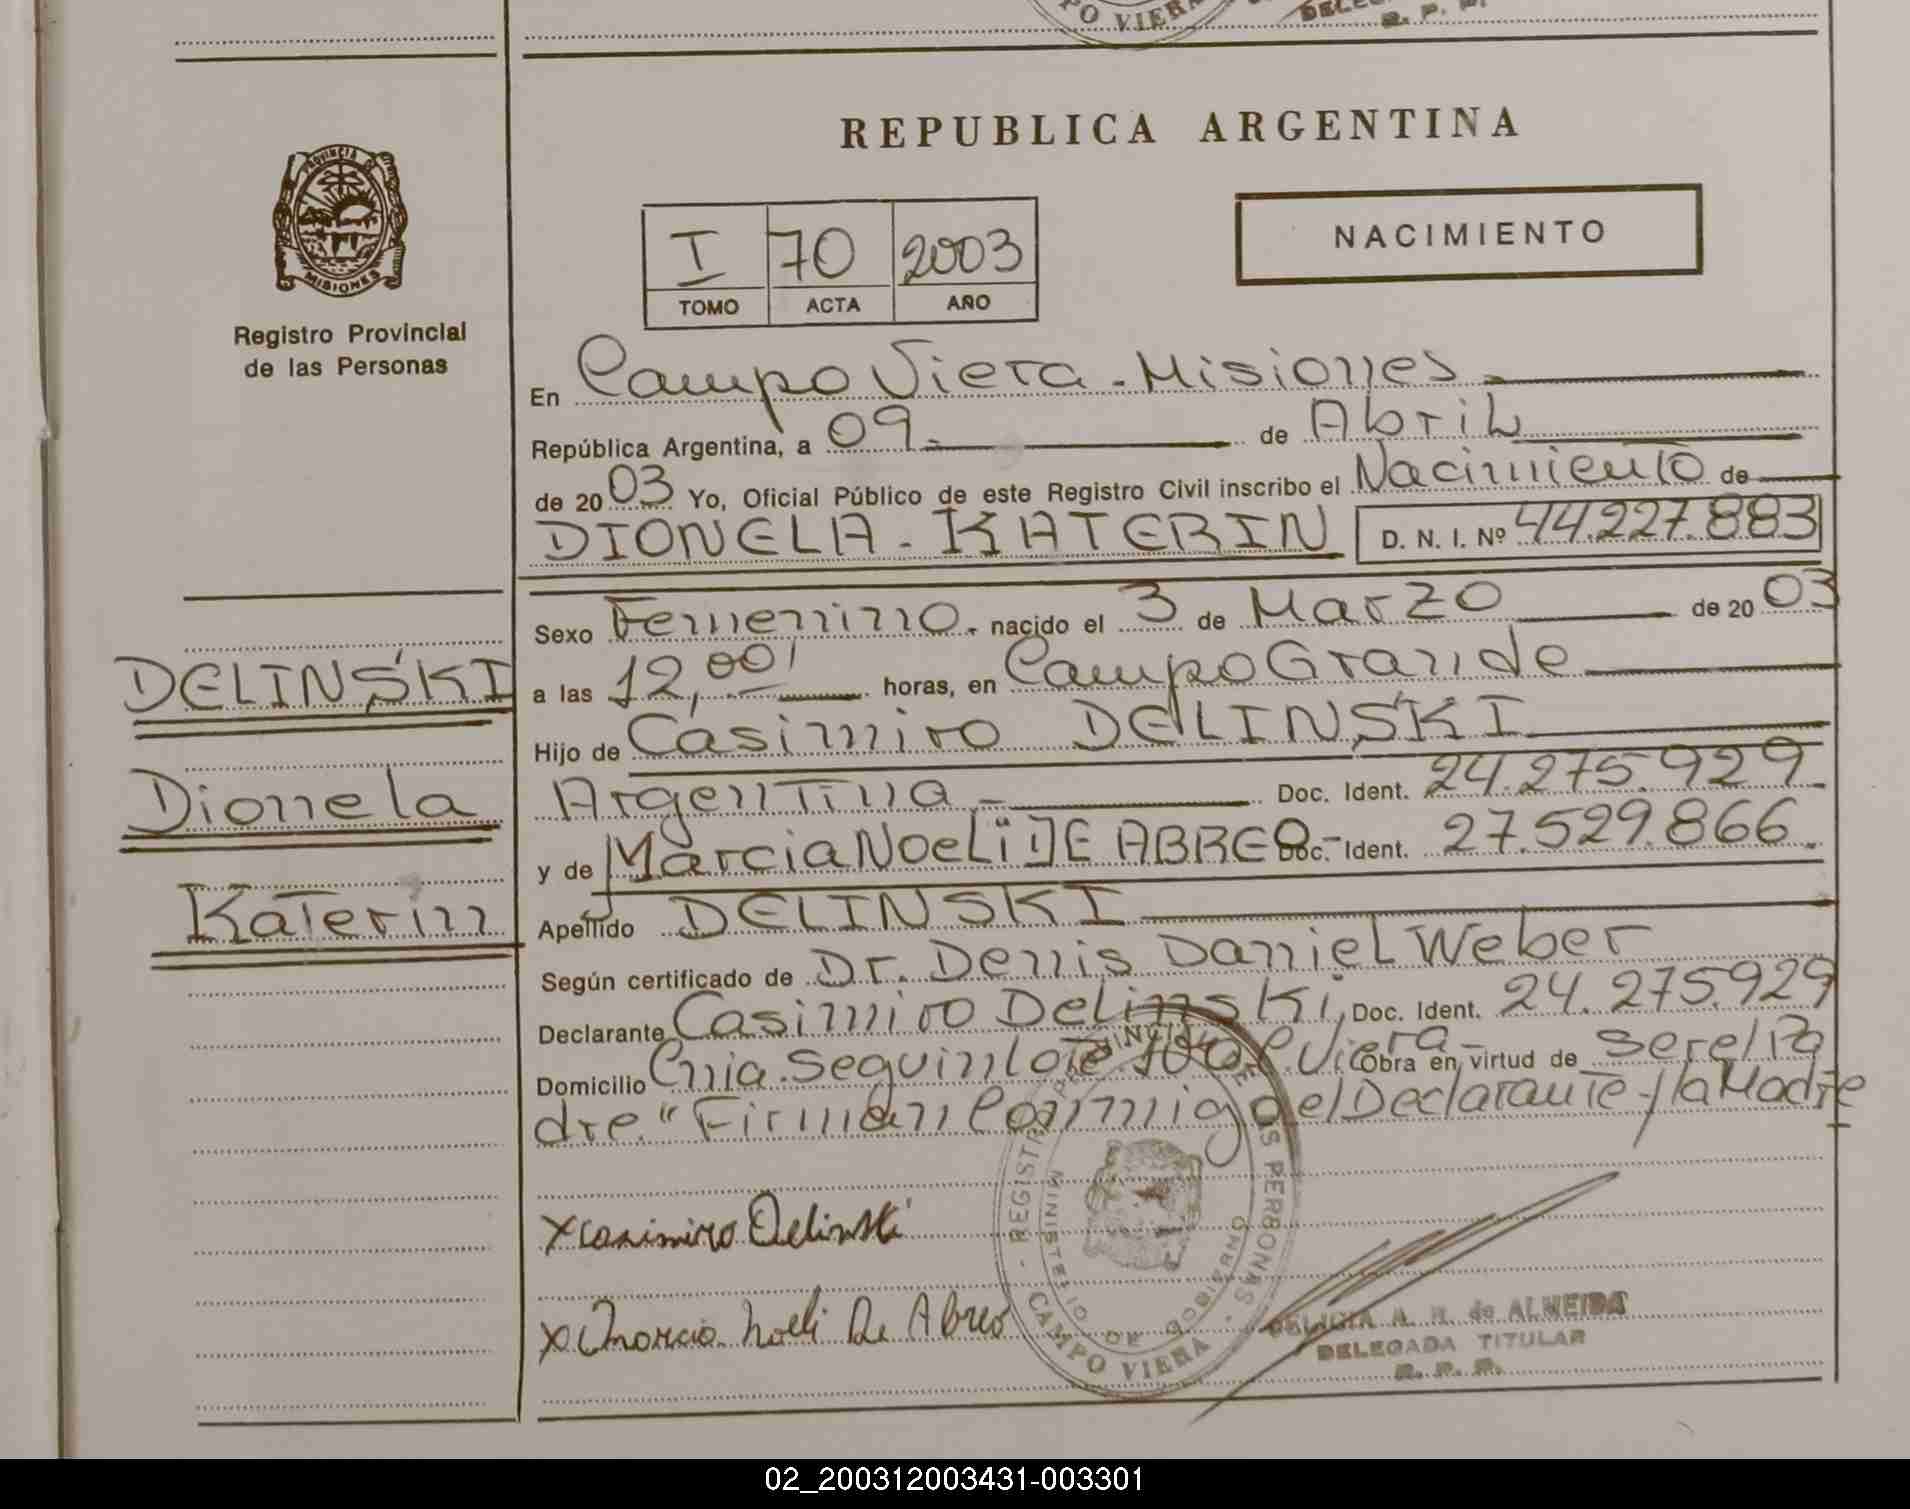 PO VIERA
R. P. P.
REPUBLICA ARGENTINA
PROVINCIA DE
MISIONES
Registro Provincial
de las Personas
I 70 2003
TOMO ACTA AÑO
NACIMIENTO
En Campo Viera - Misiones
República Argentina, a 09 de Abril
de 2003 Yo, Oficial Público de este Registro Civil inscribo el Nacimiento de
DIONELA - KATERIN D. N. I. Nº 44.227.883
Sexo Femenino. nacido el 3 de Marzo de 2003
DELINSKI
a las 12,00 horas, en Campo Grande
Hijo de Casimiro DELINSKI
Dionela
Argentina - Doc. Ident. 24.275.929
y de Marcia Noeli DE ABREO - Doc. Ident. 27.529.866
Katerin
Apellido DELINSKI
Según certificado de Dr. Denis Daniel Weber
Declarante Casimiro Delinski, Doc. Ident. 24.275.929
Domicilio Cnia. Seguin lote C. Viera - Obra en virtud de ser el Pa
dre." Firman Conmigo el Declarante y la Madre
X Casimiro Delinski
X Marcia Noeli De Abreo
REGISTRO PROVINCIAL DE LAS PERSONAS - CAMPO VIERA -
MINISTERIO DE GOBIERNO
A. R. de ALMEIDA
DELEGADA TITULAR
R. P. P.
02_200312003431-003301